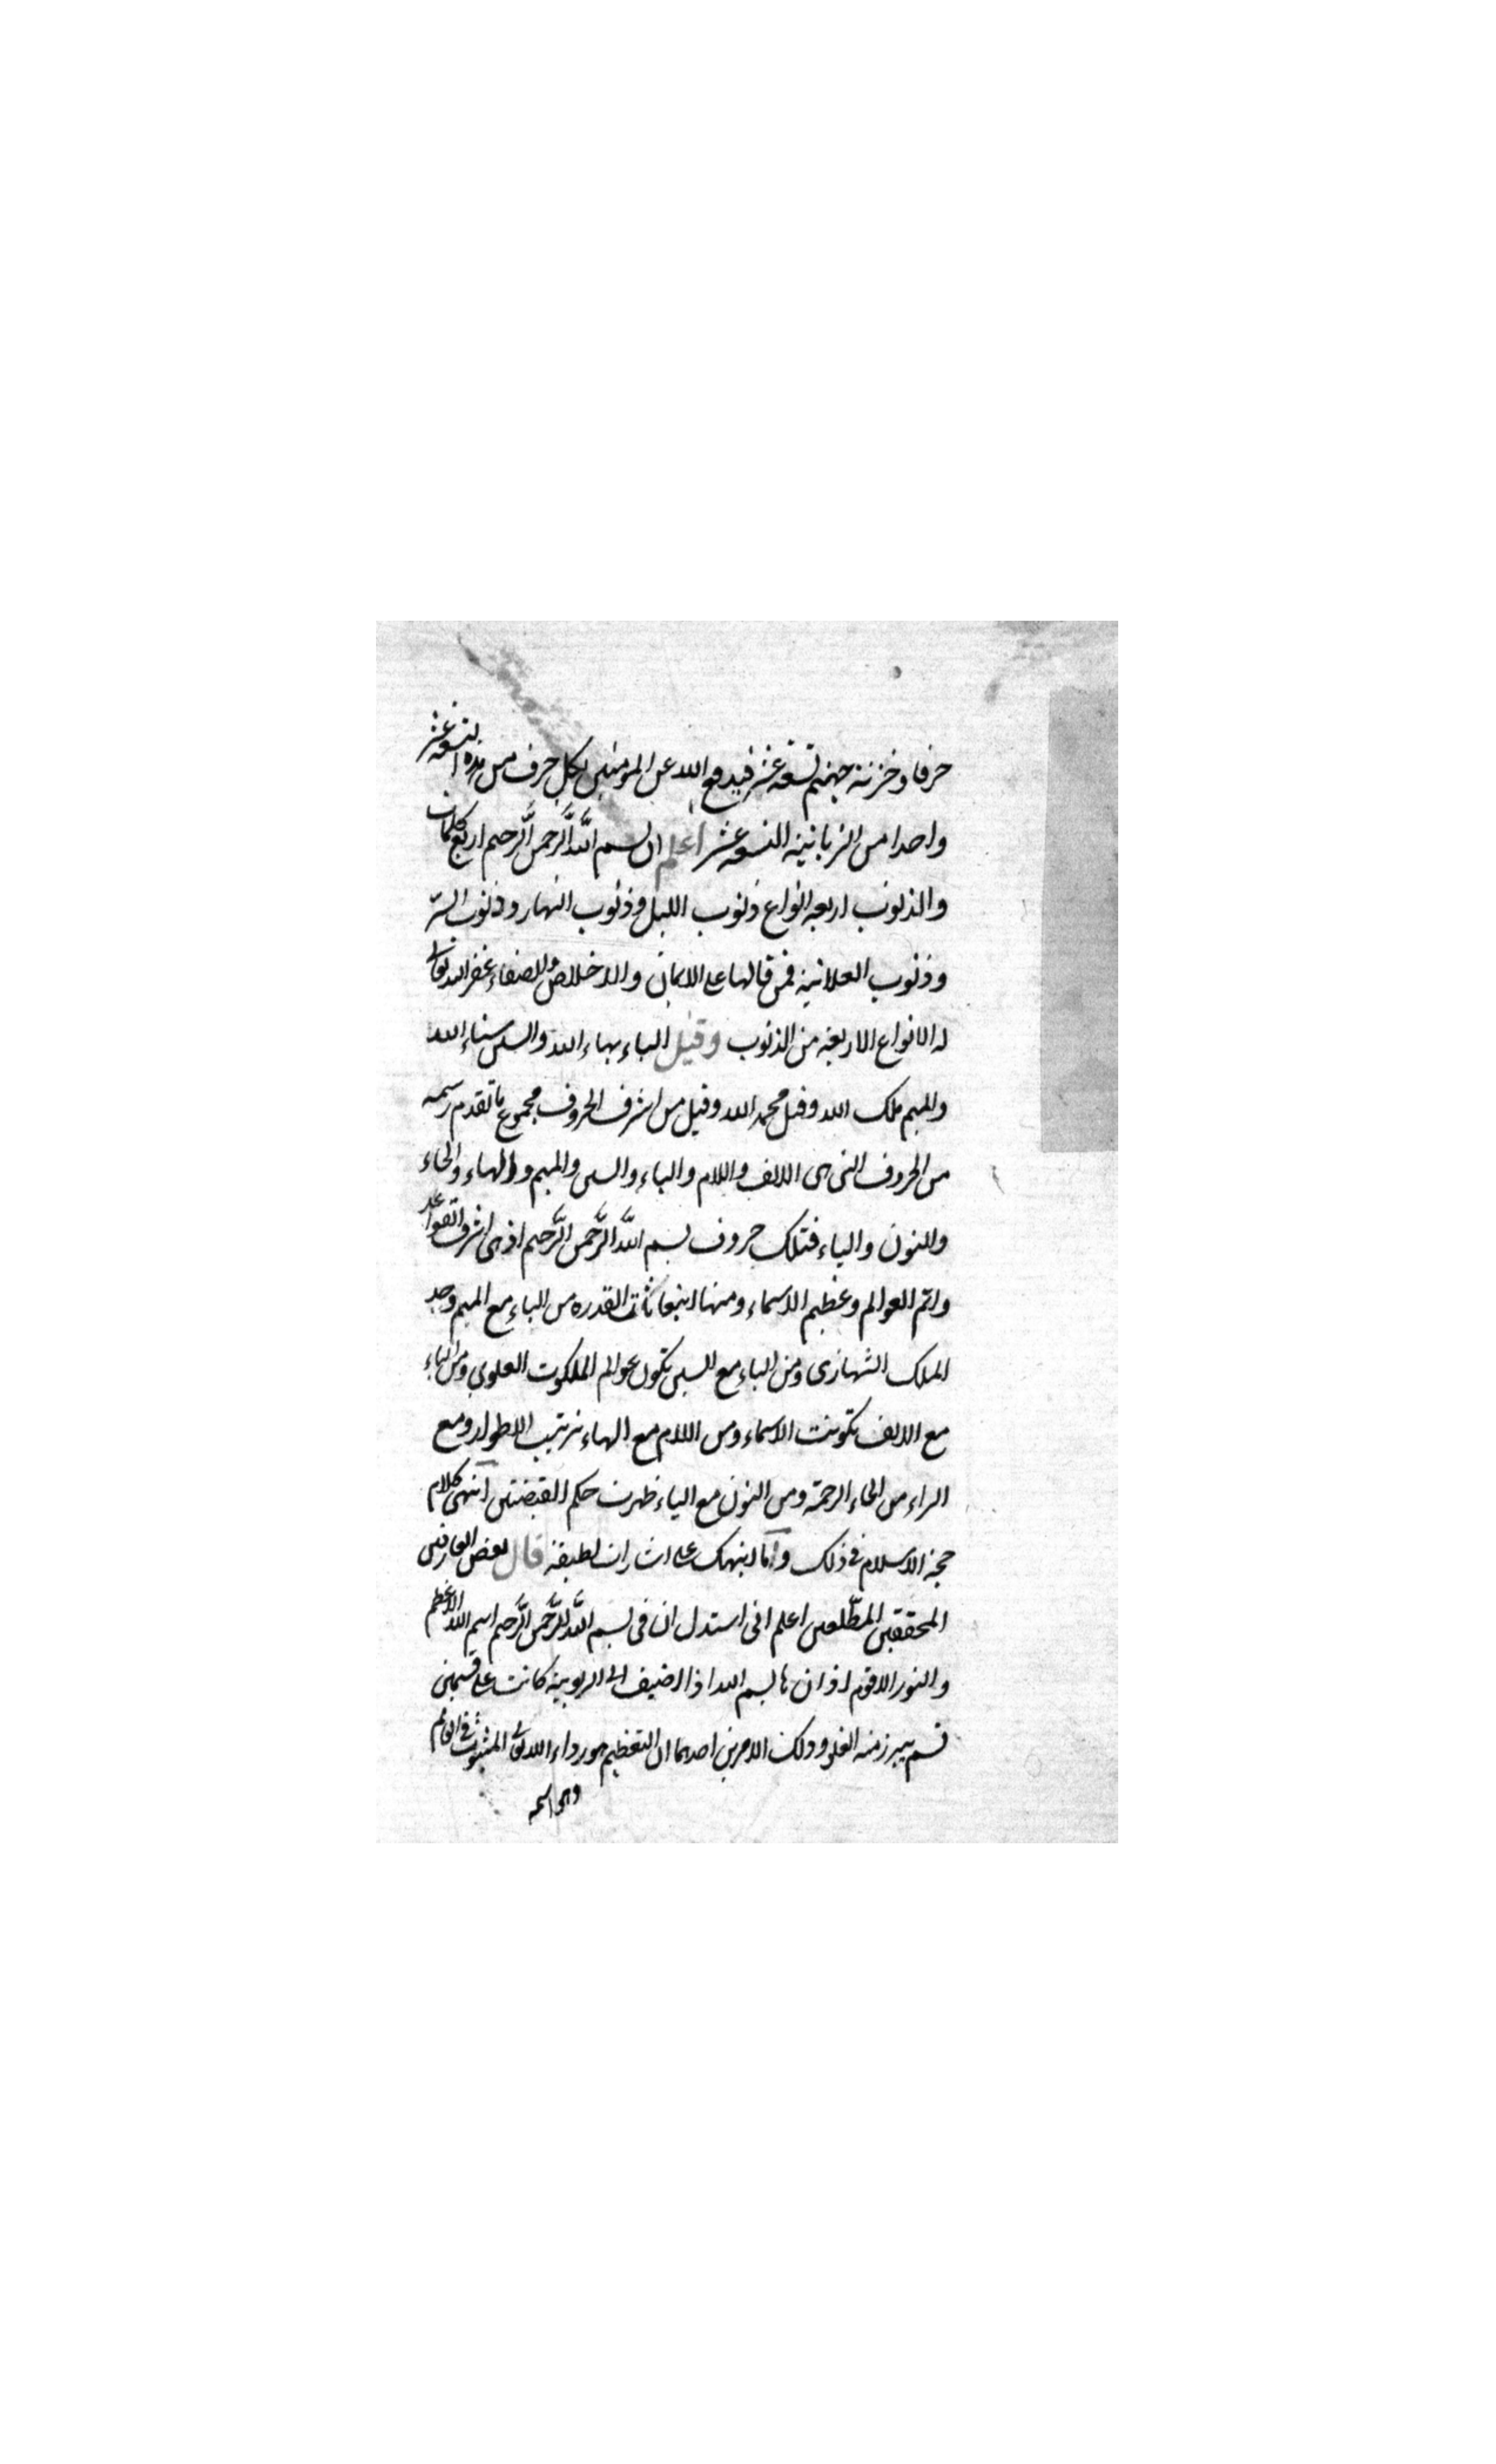 حرفا وخزنة جهنم تسعة عشر فيدفع الله عن المؤمنين بكل حرف من هذه التسعة عشر
واحدا من الزبانية التسعة عشر اعلم ان بسم الله الرحمن الرحيم اربع كلمات
والذنوب اربعة انواع ذنوب الليل وذنوب النهار وذنوب السر
وذنوب العلانية فمن قالها على الايمان والاخلاص والصفاء غفر الله تعالى
له الانواع الاربعة من الذنوب وقيل الباء بهاء الله والسين سناء الله
والميم ملك الله وقيل محمد الله وقيل من اشرف الحروف مجموع ما تقدم رسمه
من الحروف التي هي الالف واللام والباء والسين والميم والهاء والحاء
والنون والياء فتلك حروف بسم الله الرحمن الرحيم اذ هي اشرف القواعد
واتم العوالم وعظيم الاسماء ومنها انبعاثات القدره من الباء مع الميم وجد
الملك ومن الباء مع السين تكون عوالم الملكوت العلوي ومن الباء
مع الالف تكونت الاسماء ومن اللام مع الهاء ترتيب الاطوار ومع
الراء من الحاء الرحمة ومن النون مع الياء ظهرت حكم القبضتين انتهى كلام
حجة الاسلام في ذلك وانا انبهك على اشارات لطيفة قال بعض العارفين
المحققين المطلعين اعلم اني استدل ان في بسم الله الرحمن الرحيم اسم الله الاعظم
والنور الاقوم اذ ان با بسم الله اذا اضيف الى الربوبية كانت على قسمين
قسم يبرز منه العلو وذلك الامرين احدهما ان التعظيم هو رداء الله تعالى المثبوت في العالم
وهي اسمه